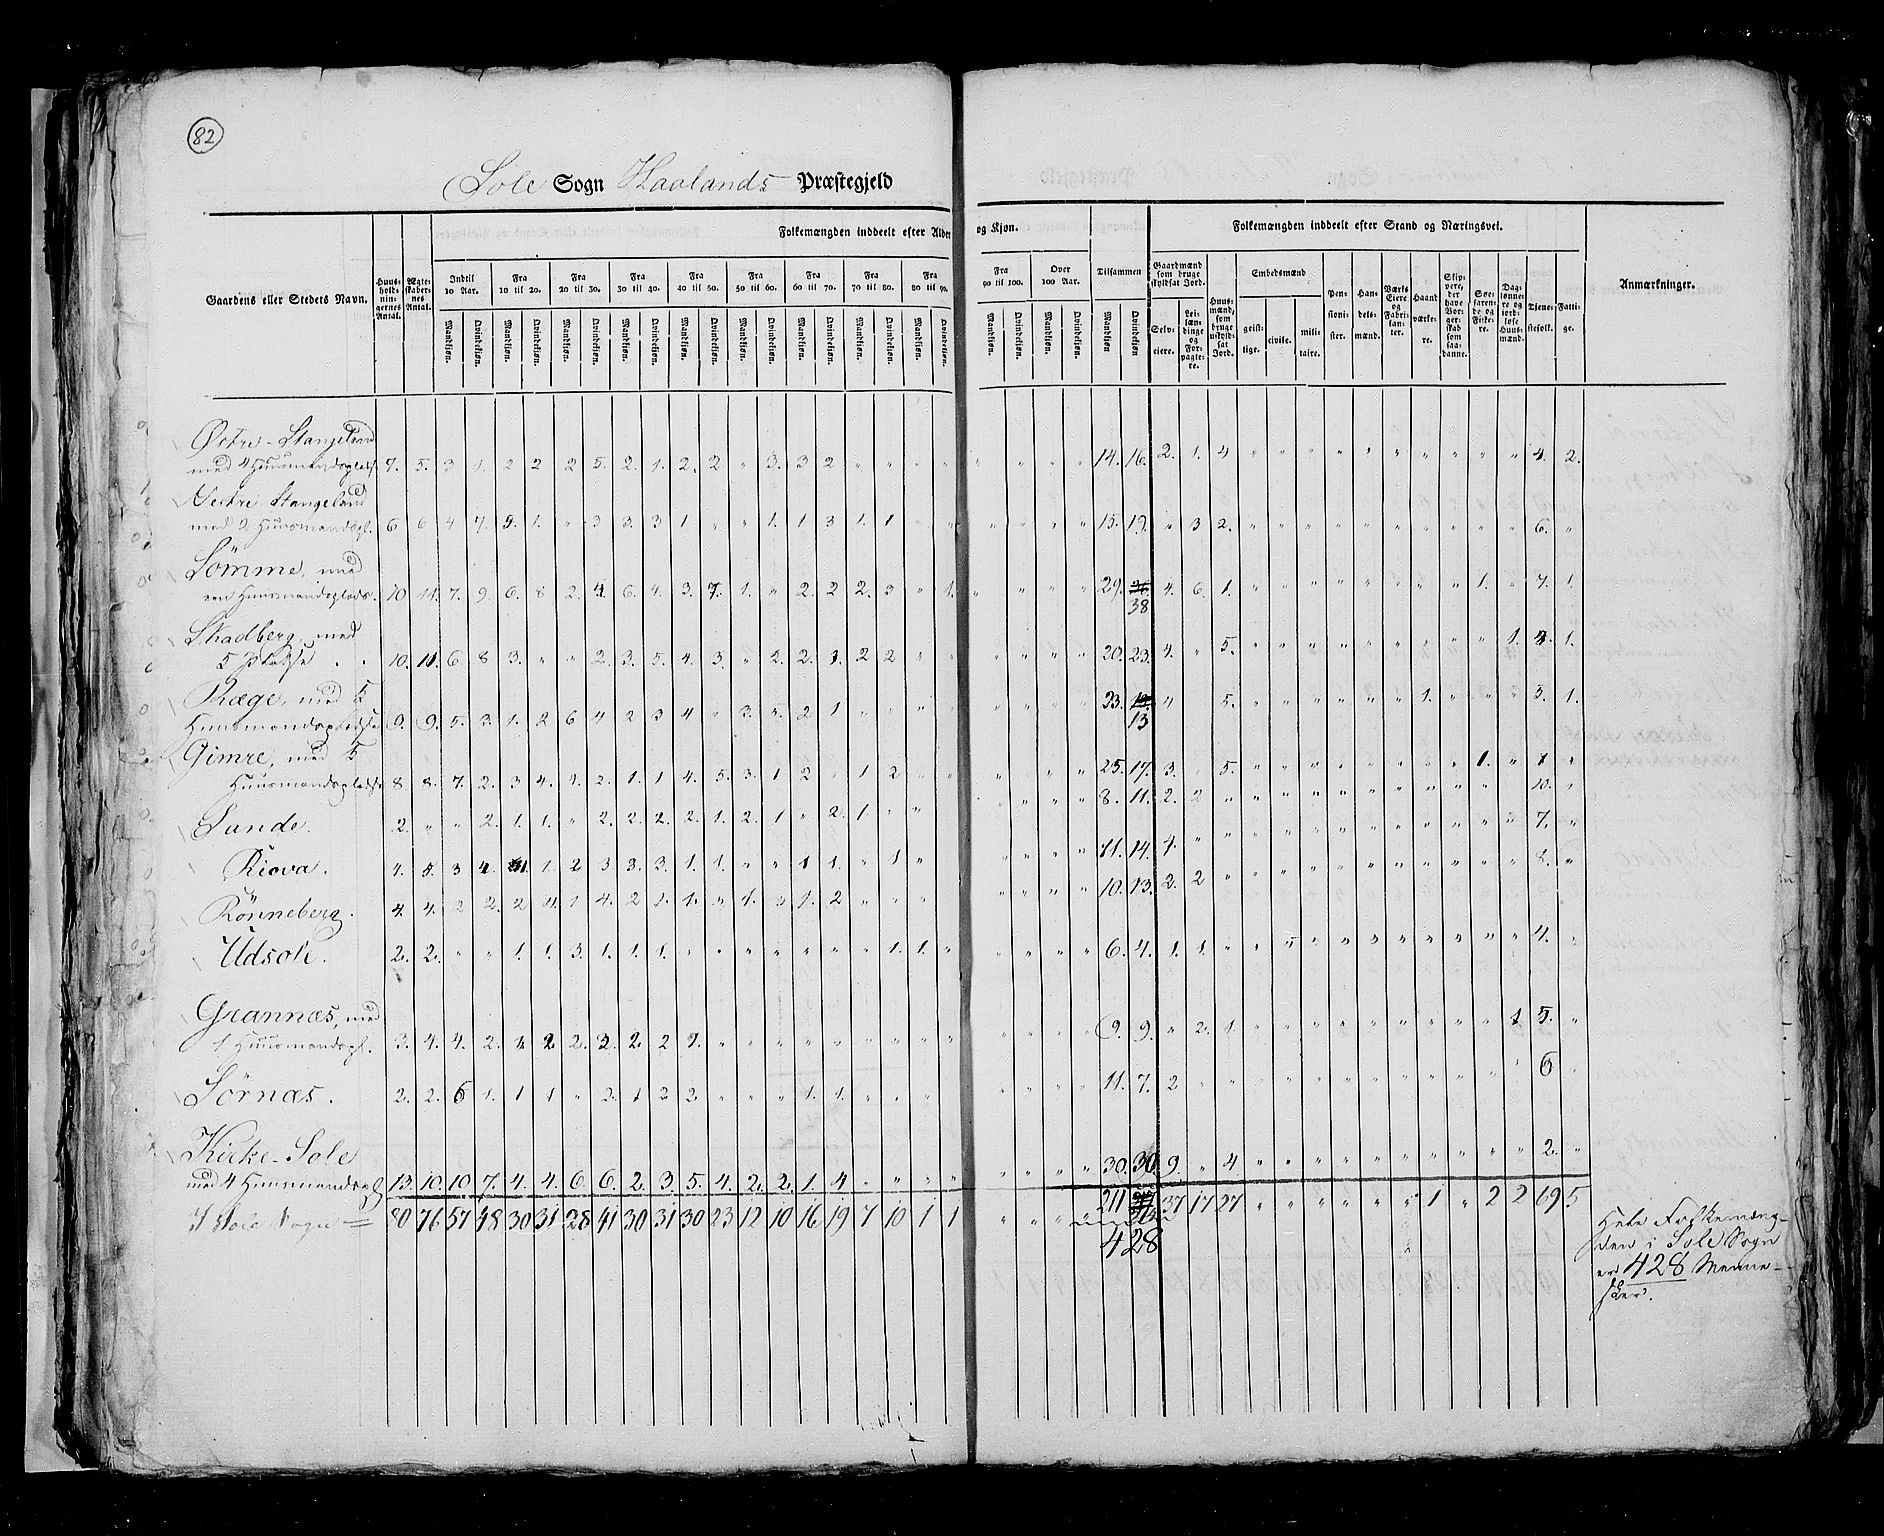 82
Sole Sogn Haalands Præstegjeld
Gaardens eller Stedets Navn.
Huusholdningernes Antal.
Ægteskabernes Antal.
Folkemængden inddeelt efter Alder og Kjøn.
Indtil 10 Aar. Fra 10 til 20. Fra 20 til 30. Fra 30 til 40. Fra 40 til 50. Fra 50 til 60. Fra 60 til 70. Fra 70 til 80. Fra 80 til 90. Fra 90 til 100. Over 100 Aar. Tilsammen
Mandkjøn. Qvindekjøn.
Folkemængden inddeelt efter Stand og Næringsvei.
Gaardmænd som bruge skyldsat Jord.
Selveiere. Leilændinge og Forpagtere.
Huusmænd, som bruge uskyldsat Jord.
Embedsmænd
geistlige. civile. militaire.
Pensionister. Handelsmænd. Værks Eiere og Fabrikanter. Haandværkere. Skippere, der have Borgerskab som saadanne. Søefarende og Fiskere. Daglønnere og jordløse Huusmænd. Tjenestefolk. Fattige.
Anmærkninger.
Østre-Stangeland
med 4 Huusmandspladse 7. 5. 3 1. 2 2 2 5. 2. 1. 2. 2 " 3. 3 2 " " " " " " " " 14. 16. 2. 1. 4 " " " " " " " " " " 4. 2.
Vestre Stangeland
med 2 Huusmandspl. 6 6 4 7. 5. 1. " 3 3. 3 1 " " 1. 1 3 1. 1 " " " " " " 15. 19. " 3 2. " " " " " " " " " " 6. "
Sömme, med
een Huusmandsplads. 10 11. 7. 9. 6. 8 2. 4. 6. 4. 3. 7. 1. " 2. 2 2. 3 " 1. " " " " 29. 38 4. 6. 1. " " " " " " " " 1. " 7. 1.
Skadberg, med
5 Pladse 10. 11. 6. 8 3. " " 2. 3. 5. 4. 3. " 2. 2. 3. 2 2 " " " " " " 20. 23. 4. " 5. " " " " " " " " " 1. 3. 1.
Ræge, med 5
Huusmandspladse 9. 9. 5. 3. 1. 2 6 4 2 3 4 " 3. 5. 2 1 " " " " " " " " 23. 13 4 " 5. " " " " " " 1. " " " 3. 1.
Gimre, med 5
Huusmandspladse 8 8. 7. 2. 3 4. 4. 2. 1. 1 4. 5. 3. 1 2 " 1 2 " " " " " " 25. 17. 3. " 5. " " " " " " " " 1. " 7 "
Sande. 2. " " 2. 1. 1. " 2. 2. 2. 2. 1. 2. 1 " 2. 1. " " " " " " 8. 11. 2. 2 " " " " " " " " " " " 10. "
Risva. 4. 5. 3 4. 1. 2 3 3. 3. 1. 1. " " 1 1. " 1 " " " " " 11. 14. 4. " " " " " " " " " " " " 7. "
Rönneberg. 4. 4. 2 2. 2 4. 1 4. 2 1. 1. " 1. " 1. 2 " " " " " " " 10. 13. 2. 2 " " " " " " " " " " " 8. "
Udsole. 2. 2. " " 1. 1. 3. 1. 1. 1. " " " " " " " 1. 1. " " " " " 6. 4. 1. 1. " " " " " " " " " " " 4. "
Grannæs, med
1 Huusmandspl. 3. 4. 4. 2. 1. 2. 2. 2. 2. 2 " " " " " " " " " " " " 9. 9. " 2. 1. " " " " " " " " " 1 5. "
Sörnæs. 2. 2. 6 1. 1 1 " 2. 1 2 2. " " " 1. 1. " " " " " " " 11. 7. 2 " " " " " " " " " " " " 6
Kirke-Sole
med 4 Huusmandspl 13. 10. 10 7. 4. 4. 6. 6. 2. 3. 5. 4. 2. 2. 1. 4 " " " " " " " " 30. 30. 9. " 4 " " " " " " " " " " 2. "
I Sole Sogn = 80 76 57 48 30 31 28 41 30 31 30 23 12 10 16 19 7 10 1 1 " " " 211 217 37 17 27 " " " " " " 1 " 2 2 69 5
428
Hele Folkemæng-
den i Sole Sogn
er 428 Menne-
sker.